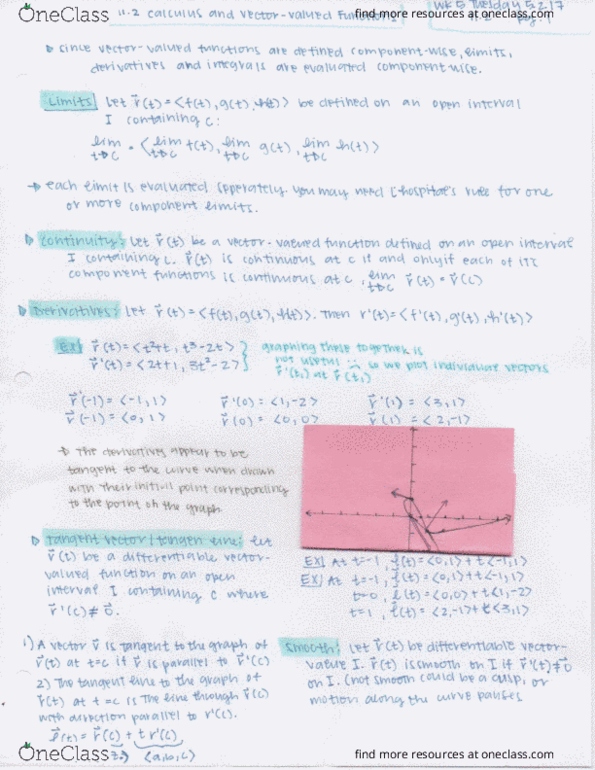 OneClass
find more resources at oneclass.com
11.2 calculus and vector-valued functions
WK 5 Tuesday 5.2.17
pg. 1
since vector-valued functions are defined component-wise, limits,
derivatives and integrals are evaluated componentwise.
Limits: Let r⃗(t)=<f(t), g(t), h(t)> be defined on an open interval
I containing c:
lim t→c = <lim t→c f(t), lim t→c g(t), lim t→c h(t)>
→ each limit is evaluated seperately. You may need L'hospital's rule for one
or more component limits.
continuity: Let r⃗(t) be a vector-valued function defined on an open interval
I containing c. r⃗(t) is continuous at c if and only if each of its
component functions is continuous at c, lim t→c r⃗(t) = r⃗(c)
Derivatives: let r⃗(t)=<f(t), g(t), h(t)>. Then r'(t)=<f'(t), g'(t), h'(t)>
Ex) r⃗(t)=<t²+t, t³-2t>
r⃗'(t)=<2t+1, 3t²-2>
graphing these together is
not useful so we plot individual vectors
r⃗'(t₁) at r⃗(t₁)
r⃗'(-1)=<-1,1> r⃗'(0)=<1,-2> r⃗'(1)=<3,1>
r⃗(-1)=<0,1> r⃗(0)=<0,0> r⃗(1)=<2,-1>
→ The derivatives appear to be
tangent to the curve when drawn
with their initial point corresponding
to the point on the graph.
tangent vector/tangen line: let
r⃗(t) be a differentiable vector-
valued function on an open
interval I containing c where
r⃗'(c)≠0⃗.
EX) At t=-1, l⃗(t)=<0,1>+t<-1,1>
EX) At t=-1, l⃗(t)=<0,1>+t<-1,1>
t=0, l⃗(t)=<0,0>+t<1,-2>
t=1, l⃗(t)=<2,-1>+t<3,1>
1) A vector v⃗ is tangent to the graph of
r⃗(t) at t=c if v⃗ is parallel to r⃗'(c)
2) The tangent line to the graph of
r⃗(t) at t=c is the line through r⃗(c)
with direction parallel to r'(c).
l⃗(t)= r⃗(c) + t r'(c)
<a,b,c>
smooth: Let r⃗(t) be differentiable vector-
value I. r⃗(t) is smooth on I if r⃗'(t)≠0⃗
on I. (not smooth could be a cusp, or
motion along the curve pauses
OneClass
find more resources at oneclass.com